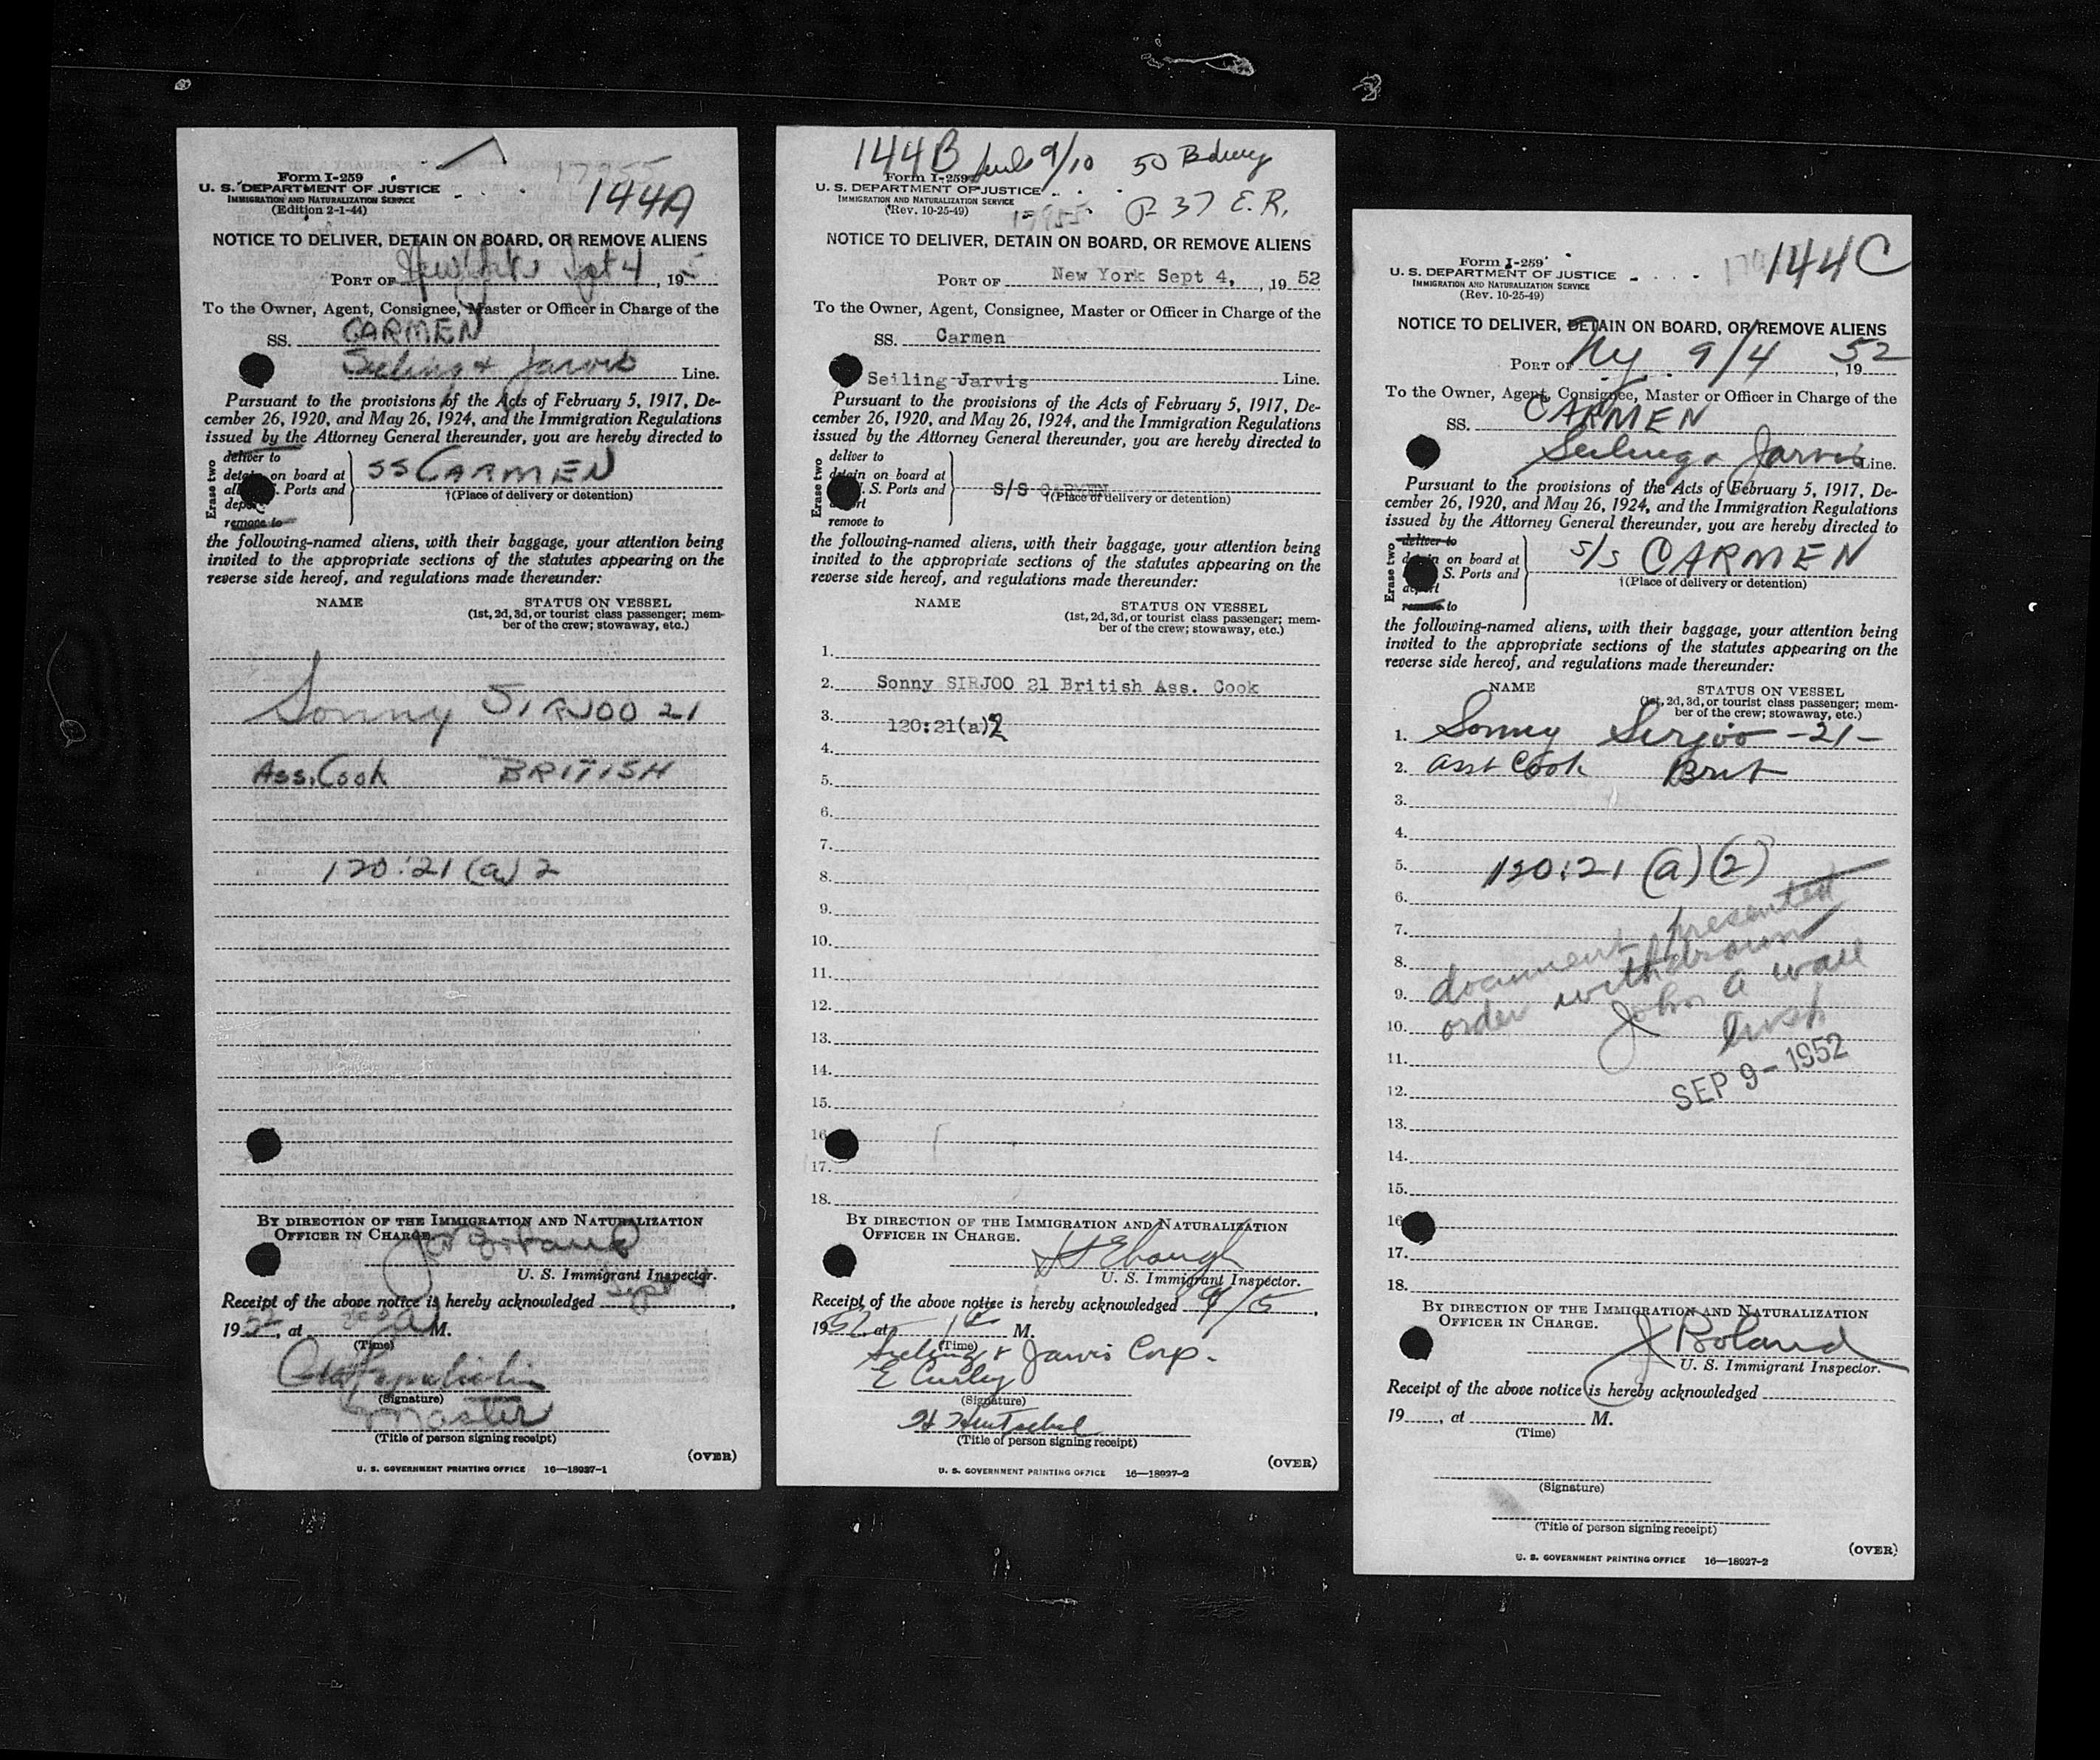 17955
Form I-259
144A
U. S. DEPARTMENT OF JUSTICE
IMMIGRATION AND NATURALIZATION SERVICE
(Edition 2-1-44)
NOTICE TO DELIVER, DETAIN ON BOARD, OR REMOVE ALIENS
PORT OF New York Sept 4, 195
To the Owner, Agent, Consignee, Master or Officer in Charge of the
SS. CARMEN
Seeling & Jarvis Line.
Pursuant to the provisions of the Acts of February 5, 1917, De-
cember 26, 1920, and May 26, 1924, and the Immigration Regulations
issued by the Attorney General thereunder, you are hereby directed to
Erase two
deliver to
detain on board at
all S. Ports and
SS CARMEN
†(Place of delivery or detention)
remove to
the following-named aliens, with their baggage, your attention being
invited to the appropriate sections of the statutes appearing on the
reverse side hereof, and regulations made thereunder:
NAME STATUS ON VESSEL
(1st, 2d, 3d, or tourist class passenger; mem-
ber of the crew; stowaway, etc.)
Sonny SIRJOO 21
Ass. Cook BRITISH
120:21 (a) 2
BY DIRECTION OF THE IMMIGRATION AND NATURALIZATION
OFFICER IN CHARGE.
U. S. Immigrant Inspector.
Receipt of the above notice is hereby acknowledged Sept 4,
1952, at M.
(Time)
(Signature)
Master
(Title of person signing receipt)
(OVER)
U. S. GOVERNMENT PRINTING OFFICE 16—18927-1
144B 9/10 50 Bdwy
Form I-259
U. S. DEPARTMENT OF JUSTICE
IMMIGRATION AND NATURALIZATION SERVICE
P 37 E. R.
(Rev. 10-25-49)
17955
NOTICE TO DELIVER, DETAIN ON BOARD, OR REMOVE ALIENS
PORT OF New York Sept 4, 1952
To the Owner, Agent, Consignee, Master or Officer in Charge of the
SS. Carmen
Seiling Jarvis Line.
Pursuant to the provisions of the Acts of February 5, 1917, De-
cember 26, 1920, and May 26, 1924, and the Immigration Regulations
issued by the Attorney General thereunder, you are hereby directed to
Erase two
deliver to
detain on board at
S. Ports and
S/S CARMEN
†(Place of delivery or detention)
remove to
the following-named aliens, with their baggage, your attention being
invited to the appropriate sections of the statutes appearing on the
reverse side hereof, and regulations made thereunder:
NAME STATUS ON VESSEL
(1st, 2d, 3d, or tourist class passenger; mem-
ber of the crew; stowaway, etc.)
1.
2. Sonny SIRJOO 21 British Ass. Cook
3. 120:21(a)2
4.
5.
6.
7.
8.
9.
10.
11.
12.
13.
14.
15.
16
17.
18.
BY DIRECTION OF THE IMMIGRATION AND NATURALIZATION
OFFICER IN CHARGE.
U. S. Immigrant Inspector.
Receipt of the above notice is hereby acknowledged 9/5,
1952, at M.
(Time)
Seeling & Jarvis Corp.
E Curley
(Signature)
(Title of person signing receipt)
(OVER)
U. S. GOVERNMENT PRINTING OFFICE 16—18927-2
144C
Form I-259
U. S. DEPARTMENT OF JUSTICE
IMMIGRATION AND NATURALIZATION SERVICE
(Rev. 10-25-49)
NOTICE TO DELIVER, DETAIN ON BOARD, OR REMOVE ALIENS
PORT OF Ny 9/4, 1952
To the Owner, Agent, Consignee, Master or Officer in Charge of the
SS. CARMEN
Seeling & Jarvis Line.
Pursuant to the provisions of the Acts of February 5, 1917, De-
cember 26, 1920, and May 26, 1924, and the Immigration Regulations
issued by the Attorney General thereunder, you are hereby directed to
Erase two
deliver to
detain on board at
S. Ports and
S/S CARMEN
†(Place of delivery or detention)
remove to
the following-named aliens, with their baggage, your attention being
invited to the appropriate sections of the statutes appearing on the
reverse side hereof, and regulations made thereunder:
NAME STATUS ON VESSEL
(1st, 2d, 3d, or tourist class passenger; mem-
ber of the crew; stowaway, etc.)
1. Sonny Sirjoo -21-
2. asst Cook Brit
3.
4.
5. 120:21 (a)(2)
6.
7.
8.
9.
10.
11.
12.
document presented
order withdrawn
John A Wall
Insp
SEP 9-1952
13.
14.
15.
16
17.
18.
BY DIRECTION OF THE IMMIGRATION AND NATURALIZATION
OFFICER IN CHARGE.
J Boland
U. S. Immigrant Inspector.
Receipt of the above notice is hereby acknowledged
19, at M.
(Time)
(Signature)
(Title of person signing receipt)
(OVER)
U. S. GOVERNMENT PRINTING OFFICE 16—18927-2